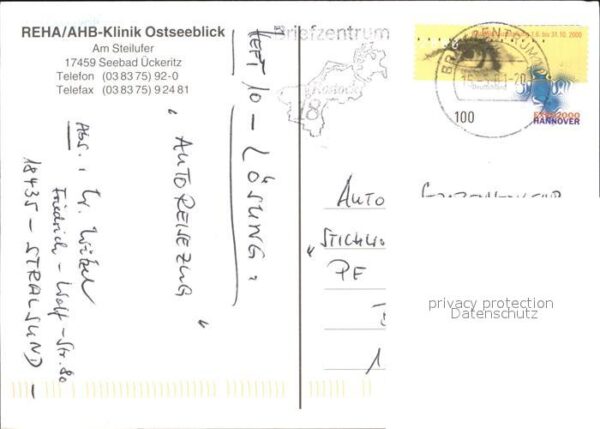 REHA/AHB-Klinik Ostseeblick
Am Steilufer
17459 Seebad Ückeritz
Telefon (03 83 75) 92-0
Telefax (03 83 75) 9 24 81
HEFT 10 - LÖSUNG:
"AUTOREISEZUG"
Abs.: W.
Friedrich-Wolf-Str. 80
18435 - STRALSUND -
Briefzentrum
Rostock
18
1.6. bis 31.10. 2000
BRIEFZENTRUM
Deutschland
100
EXPO2000
HANNOVER
AUTO
"STICHWO
PF
1
privacy protection
Datenschutz